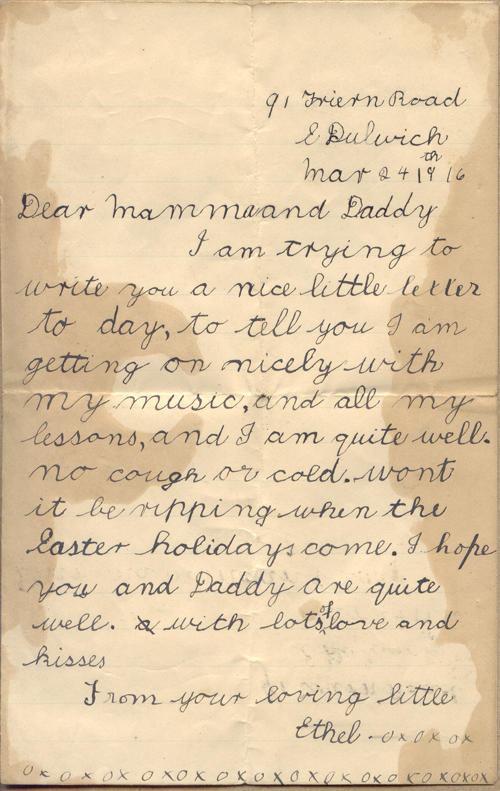 91 Friern Road
E Dulwich
Mar 24th 1916
Dear Mamma and Daddy
I am trying to
write you a nice little letter
to day, to tell you I am
getting on nicely with
my music, and all my
lessons, and I am quite well.
no cough or cold. wont
it be ripping when the
Easter holidays come. I hope
you and Daddy are quite
well. with lots of love and
kisses
From your loving little
Ethel. oxoxox
ox o ox oxox oxoxoxoxox oxoxoxoxox